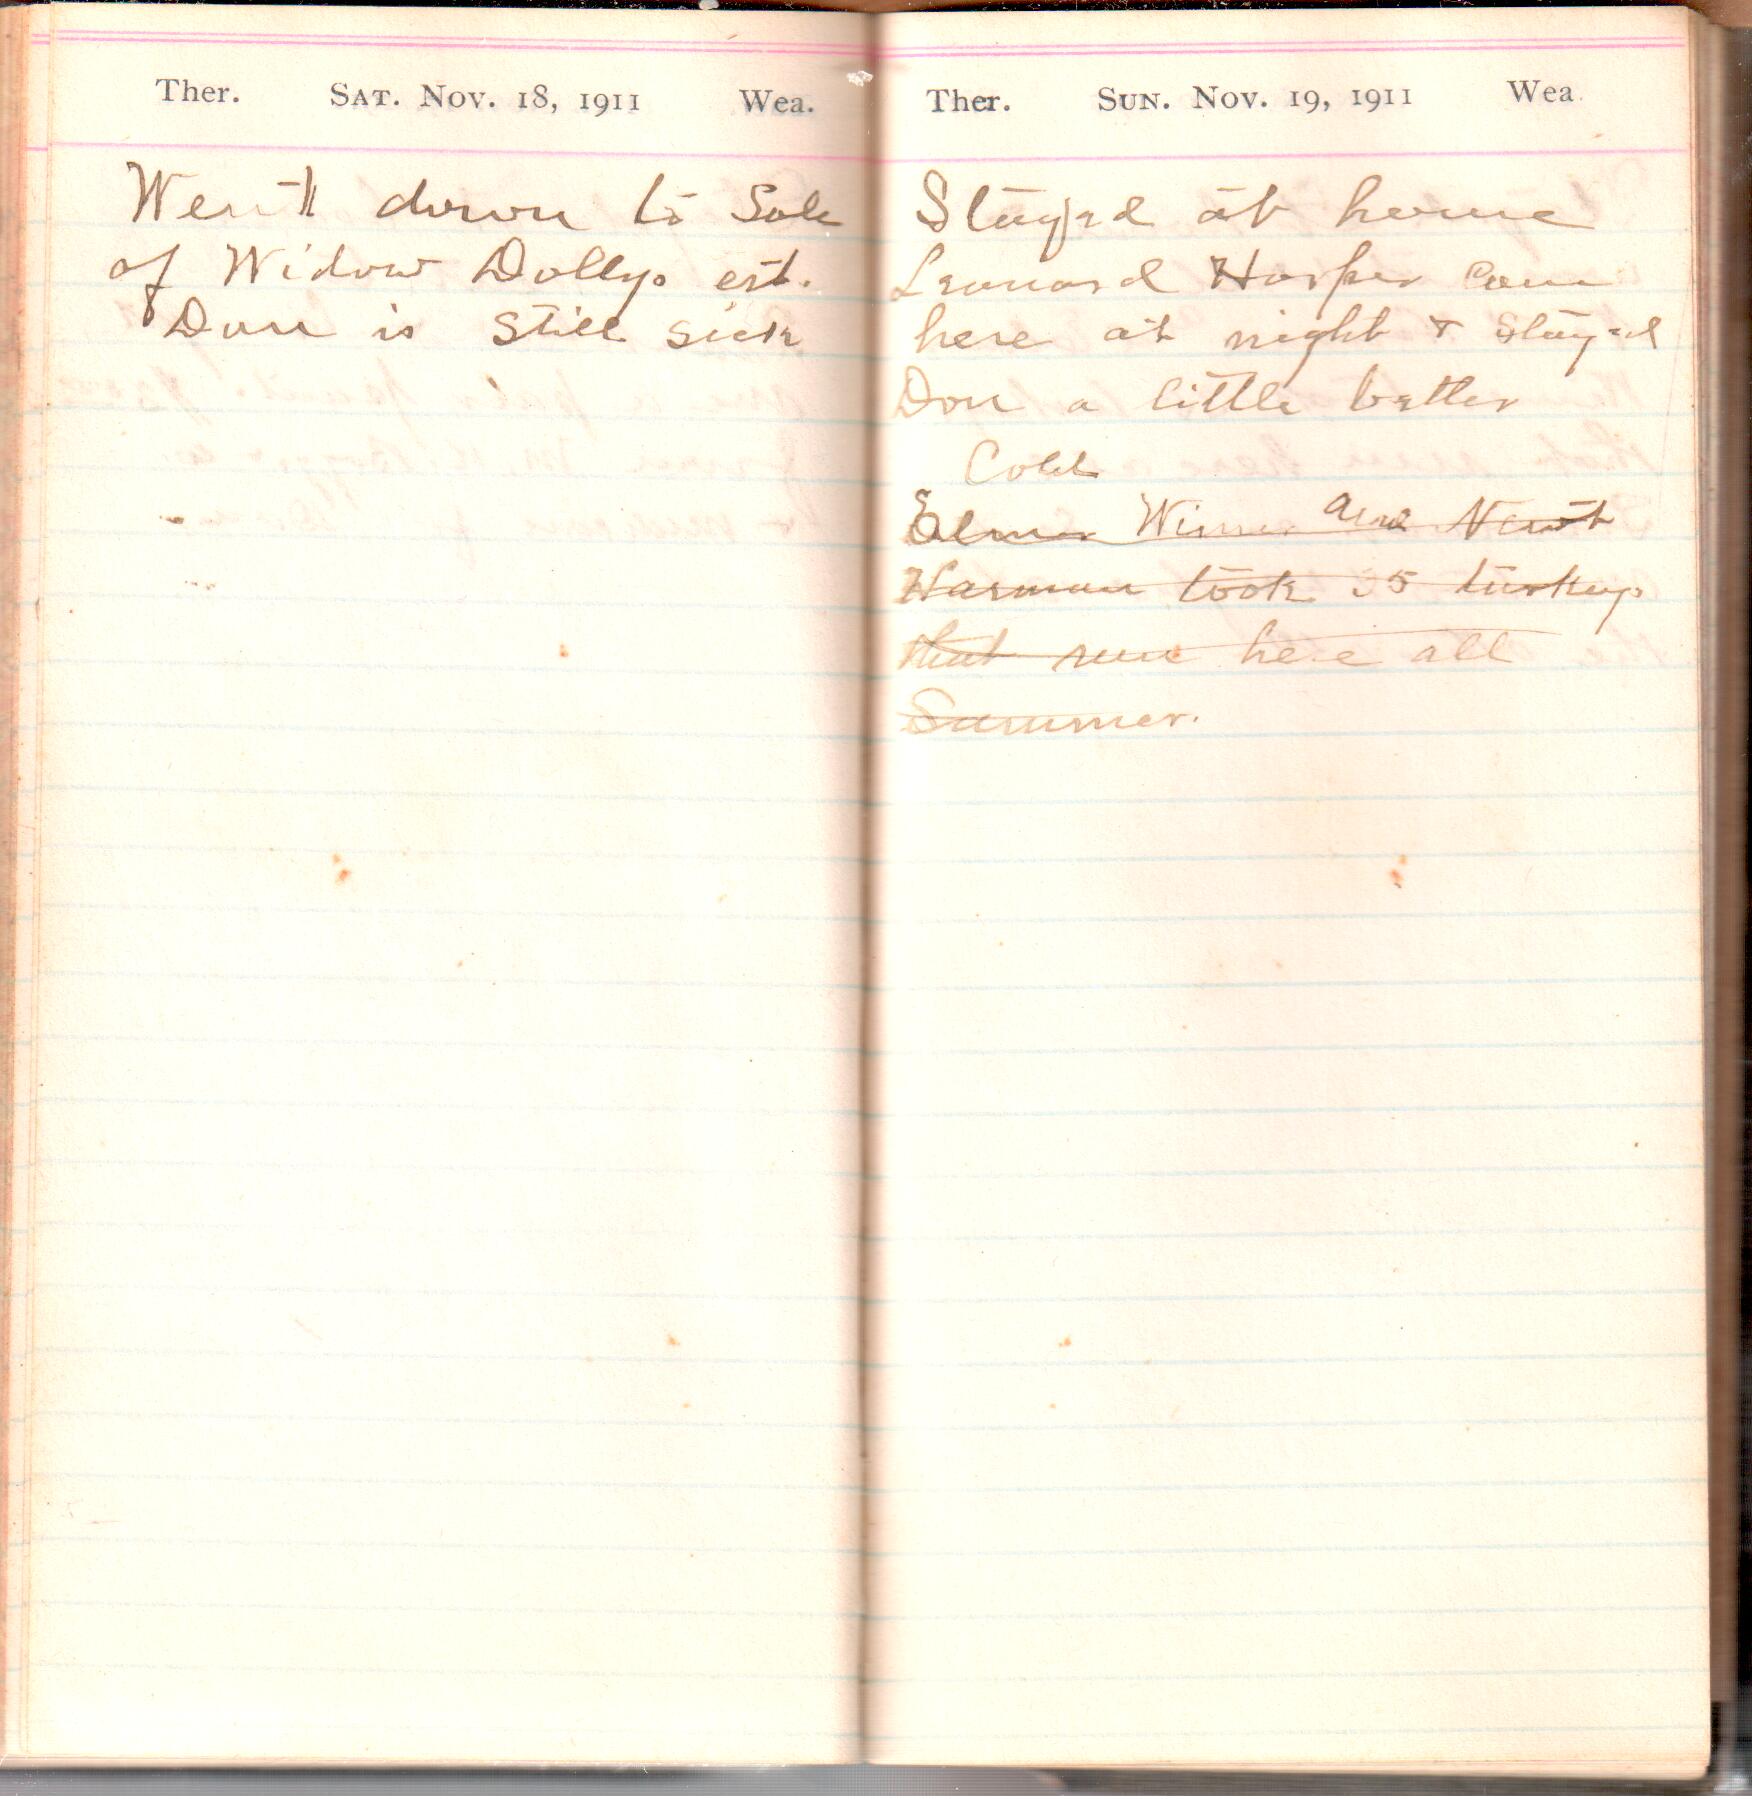 Ther. SAT. NOV. 18, 1911 Wea.
Went down to Sale
of Widow Dollys est.
Don is still sick
Ther. SUN. NOV. 19, 1911 Wea.
Stayed at home
Leonard Harper came
here at night & stayed
Don a little better
Cold
Elmer and Newt
Harman took 35 turkeys
that run here all
Summer.